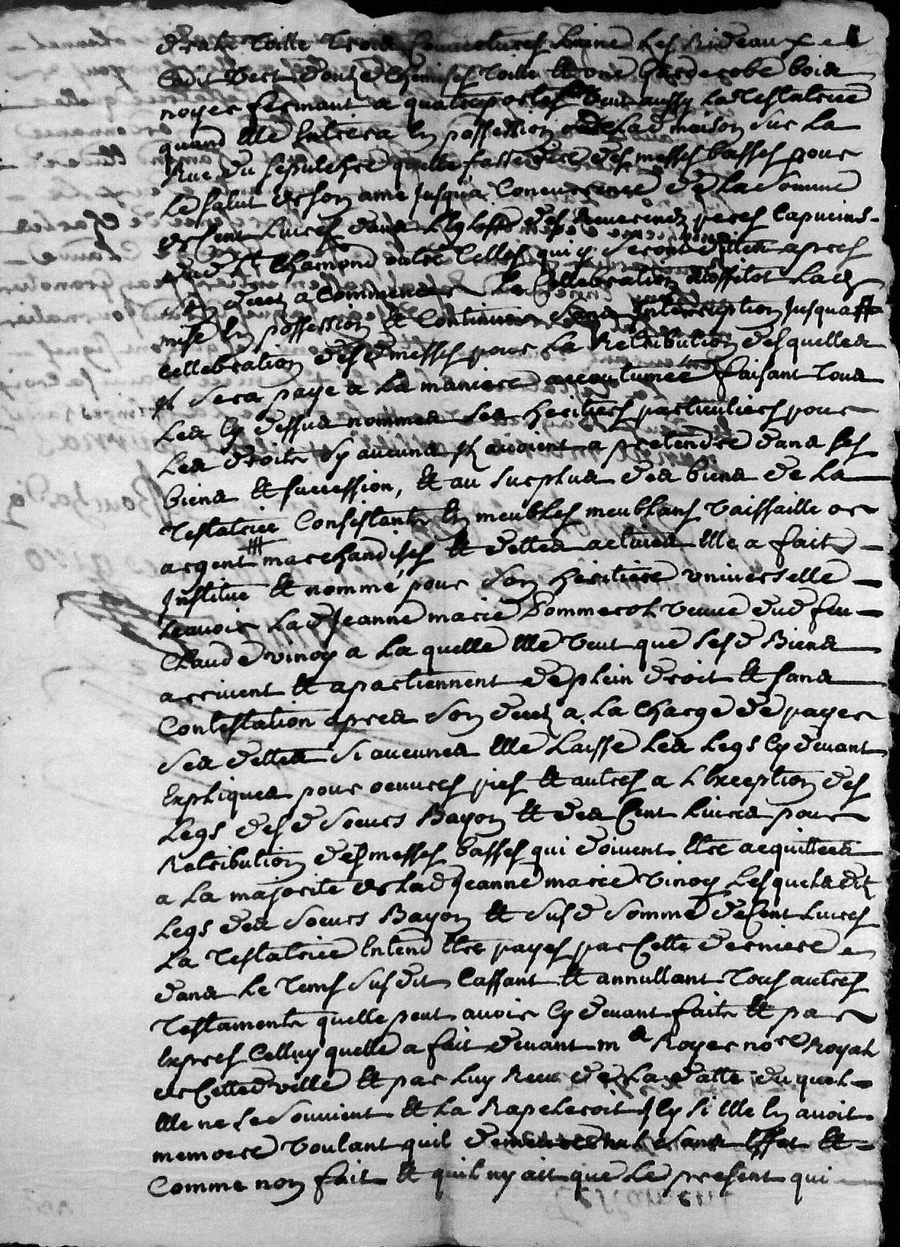 draps toille trois couvertures laine les rideaux et
dit vert douze chemises toille et une garderobe bois
noyer fermant a quatre portes veut aussy la testatrice
quand elle entrera en possession de lad maison sur la
Rue du sepulchre quelle fasse dire des messes basses pour
le salut de son ame jusqua concurrence de la somme
de cent livres dans l'Eglise des Reverends peres Capucins
dud St Chamond outre celles qui y seront dittes apres
deces a commencer la Cellebration aussitot lad
mise en possession et continuer sans Interruption jusqua
cellebration desd messes pour la Retribution desquelles
il sera payé a la maniere accoutumée faisant tous
les cy dessus nommes ses heritiers particuliers pour
les droits sy aucuns ils avoient a pretendre dans ses
biens et succession, et au surplus des biens de la
Testatrice Consistants en meubles meublans vaissaille
argent marchandises et dettes actives Elle a fait
Institué et nommé pour son heritiere universelle
scavoir la d Jeanne marie Pommerol veuve dud feu
Claude vinoy a la quelle Elle veut que ses d Biens
arrivent et apartiennent de plein droit et sans
Contestation apres son deces a la charge de payer
ses dettes si aucunes Elle laisse les legs cy devant
Expliqués pour oeuvres pies et autres a l Exception des
Legs des d soeurs Bayon et des Cent livres pour
Retribution des messes basses qui doivent Etre acquittées
a la majorité de lad Jeanne marie vinoy lesquels dit
Legs des soeurs Bayon et sus d somme de Cent livres
La Testatrice Entend Etre payés par Cette derniere
dans le Tems susdit Cassant et annullant Tous autres
Testaments quelle peut avoir cy devant faits et par
Exprés Celluy quelle a fait devant me Royer nore Royal
de Cette d ville et par luy Receu de la datte du quel
Elle ne se souvient et la Rapeleroit Icy si Elle En avoit
memoire voulant quil demeure nul et sans Effet et
Comme non fait et quil ny ait que le present qui